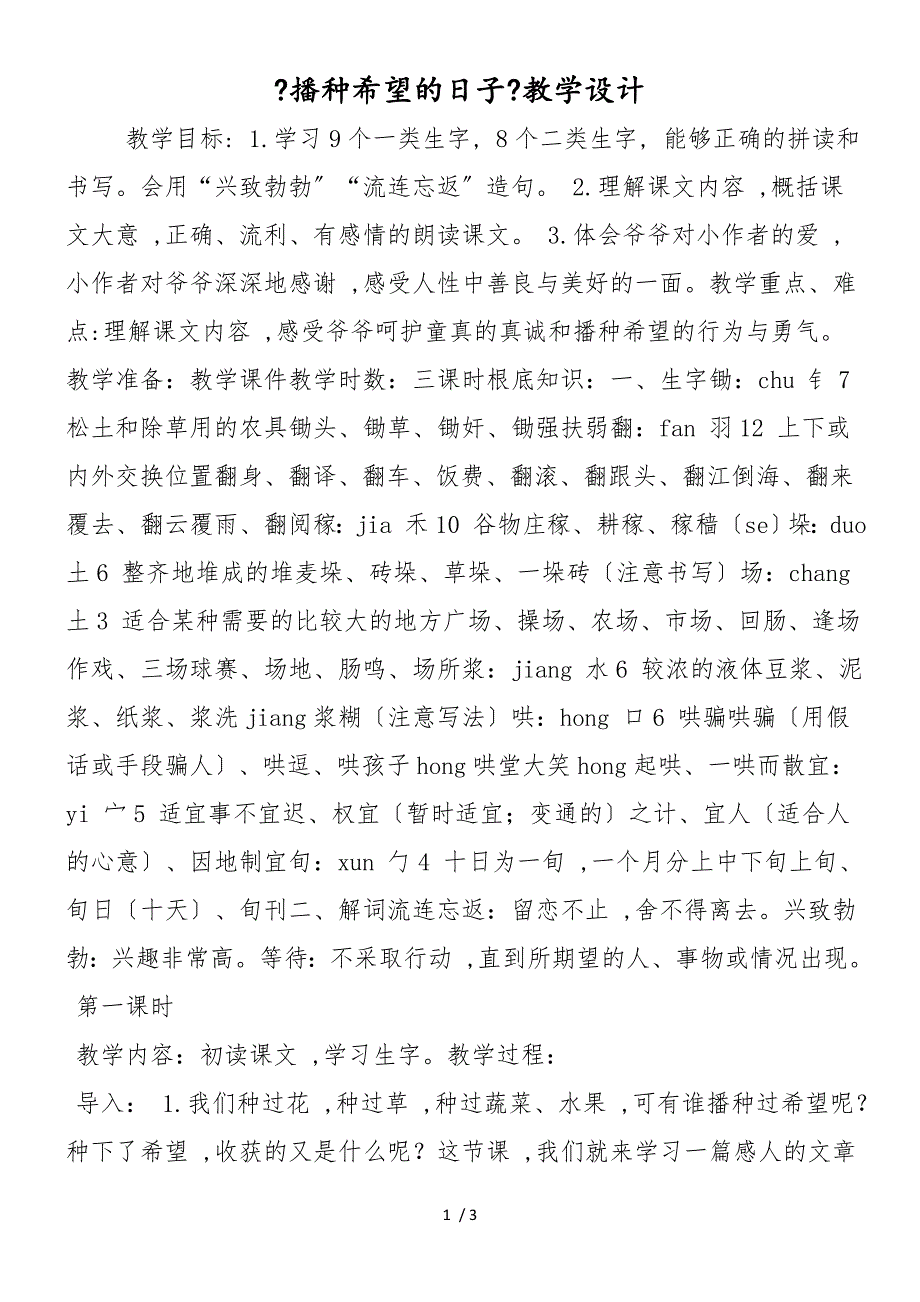 ?播种希望的日子?教学设计
教学目标: 1.学习9个一类生字，8个二类生字，能够正确的拼读和
书写。会用“兴致勃勃〞“流连忘返〞造句。 2.理解课文内容 ,概括课
文大意 ,正确、流利、有感情的朗读课文。 3.体会爷爷对小作者的爱 ,
小作者对爷爷深深地感谢 ,感受人性中善良与美好的一面。教学重点、难
点:理解课文内容 ,感受爷爷呵护童真的真诚和播种希望的行为与勇气。
教学准备：教学课件教学时数：三课时根底知识：一、生字锄：chu 钅7
松土和除草用的农具锄头、锄草、锄奸、锄强扶弱翻：fan 羽12 上下或
内外交换位置翻身、翻译、翻车、饭费、翻滚、翻跟头、翻江倒海、翻来
覆去、翻云覆雨、翻阅稼：jia 禾10 谷物庄稼、耕稼、稼穑〔se〕垛：duo
土6 整齐地堆成的堆麦垛、砖垛、草垛、一垛砖〔注意书写〕场：chang
土3 适合某种需要的比较大的地方广场、操场、农场、市场、回肠、逢场
作戏、三场球赛、场地、肠鸣、场所浆：jiang 水6 较浓的液体豆浆、泥
浆、纸浆、浆洗jiang浆糊〔注意写法〕哄：hong 口6 哄骗哄骗〔用假
话或手段骗人〕、哄逗、哄孩子hong哄堂大笑hong起哄、一哄而散宜：
yi 宀5 适宜事不宜迟、权宜〔暂时适宜；变通的〕之计、宜人〔适合人
的心意〕、因地制宜旬：xun 勹4 十日为一旬 ,一个月分上中下旬上旬、
旬日〔十天〕、旬刊二、解词流连忘返：留恋不止 ,舍不得离去。兴致勃
勃：兴趣非常高。等待：不采取行动 ,直到所期望的人、事物或情况出现。
第一课时
教学内容：初读课文 ,学习生字。教学过程：
导入： 1.我们种过花 ,种过草 ,种过蔬菜、水果 ,可有谁播种过希望呢？
种下了希望 ,收获的又是什么呢？这节课 ,我们就来学习一篇感人的文章
1 / 3